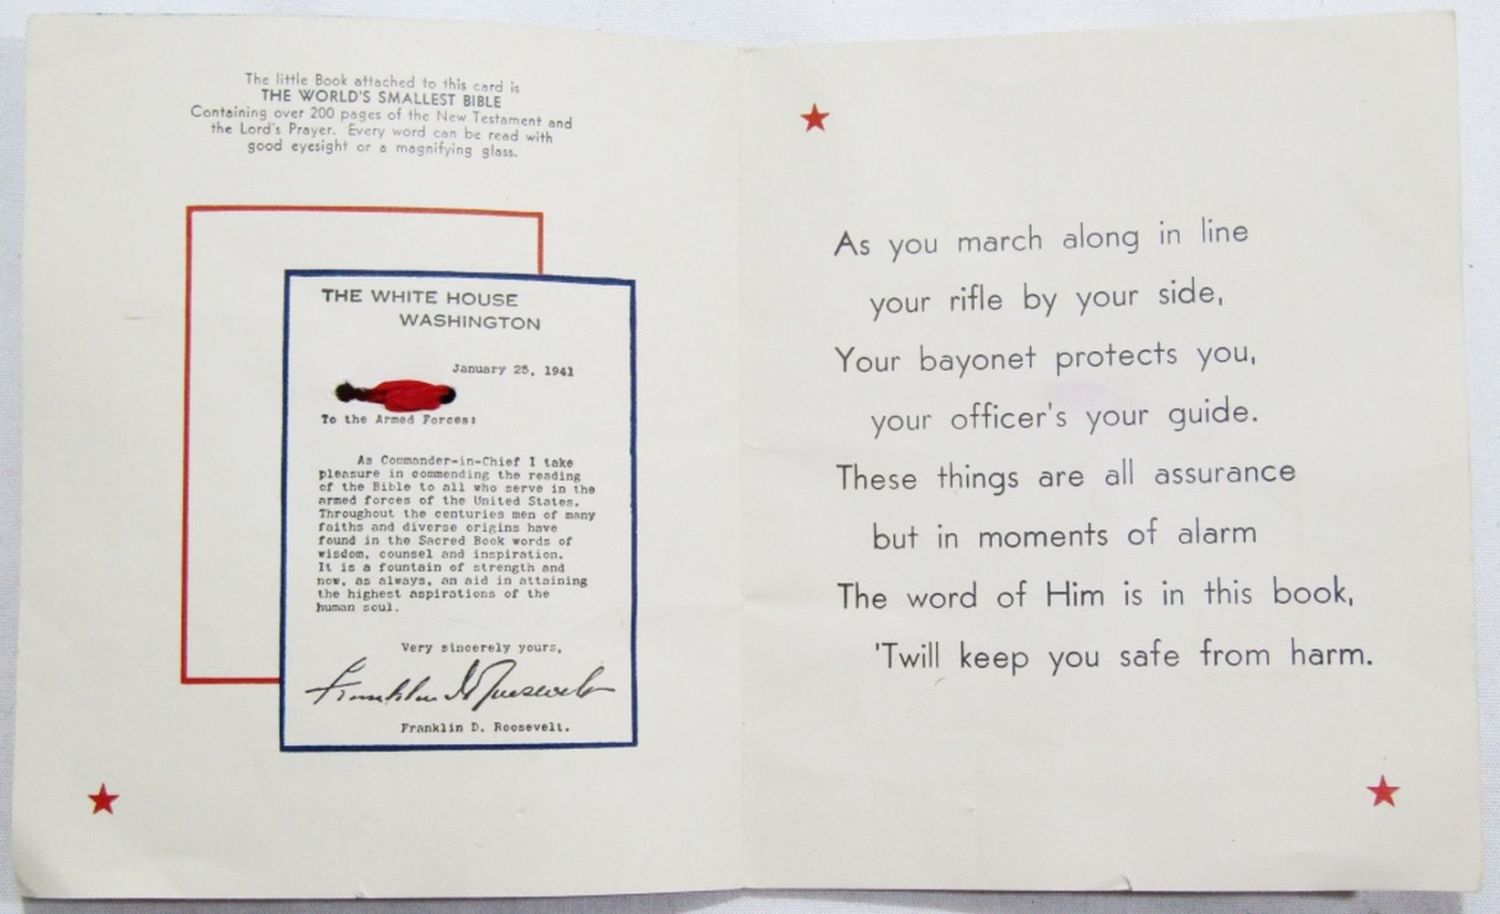 The little Book attached to this card is
THE WORLD'S SMALLEST BIBLE
Containing over 200 pages of the New Testament and
the Lord's Prayer. Every word can be read with
good eyesight or a magnifying glass.
THE WHITE HOUSE
WASHINGTON
January 25, 1941
To the Armed Forces:
As Commander-in-Chief I take
pleasure in commending the reading
of the Bible to all who serve in the
armed forces of the United States.
Throughout the centuries men of many
faiths and diverse origins have
found in the Sacred Book words of
wisdom, counsel and inspiration.
It is a fountain of strength and
now, as always, an aid in attaining
the highest aspirations of the
human soul.
Very sincerely yours,
Franklin D Roosevelt
Franklin D. Roosevelt.
As you march along in line
your rifle by your side,
Your bayonet protects you,
your officer's your guide.
These things are all assurance
but in moments of alarm
The word of Him is in this book,
'Twill keep you safe from harm.